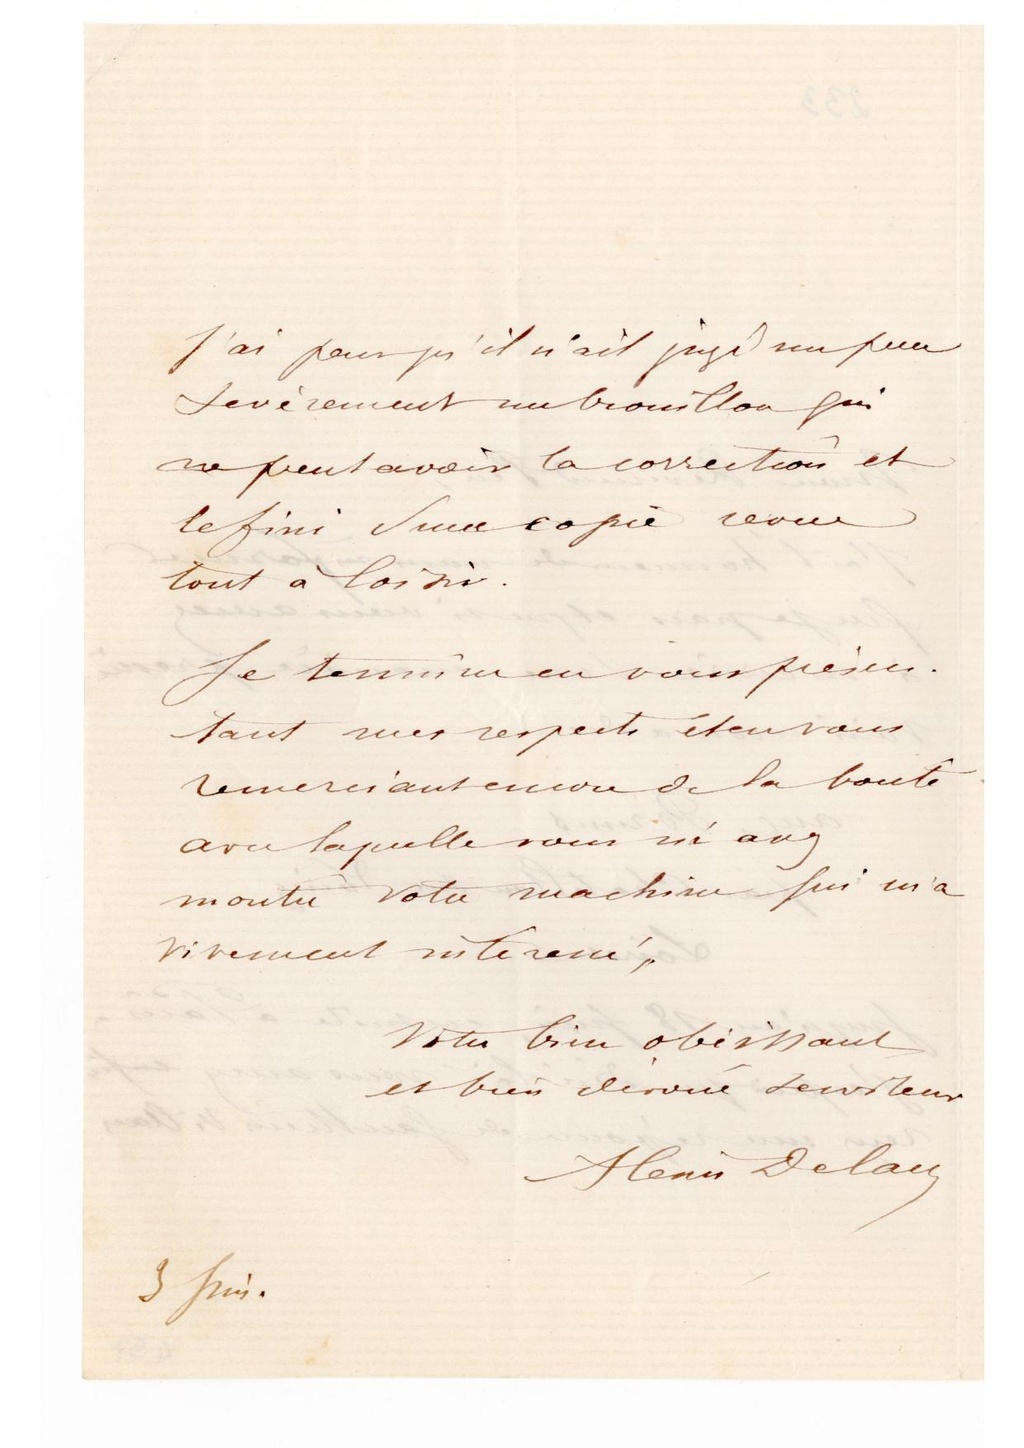 J'ai peur qu'il n'ait jugé un peu
sevèrement un brouillon qui
ne peut avoir la correction et
le fini d'une copie revue
tout à loisir.
Je termine en vous présen-
tant mes respects et en vous
remerciant encore de la bonté
avec laquelle vous m'avez
montré votre machine qui m'a
vivement intéressé,
Votre bien obéissant
et bien dévoué serviteur
Henri Delau
3 Juin.